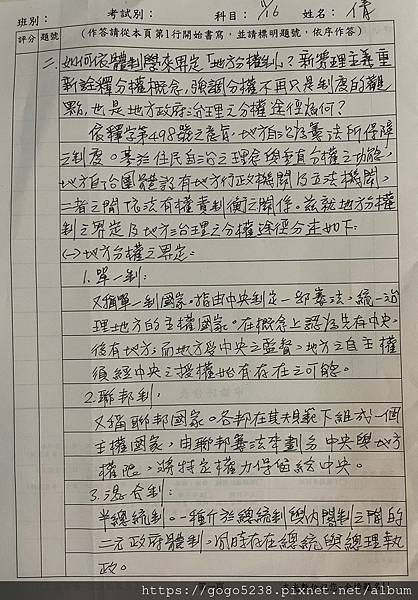 班別： 考試別： 科目：11/16 姓名：倩
評分 題號 （作答請從本頁第1行開始書寫，並請標明題號，依序作答）
二、如何依體制學來界定「地方分權制」？新管理主義重
新詮釋分權概念，強調分權不再只是制度的觀
點，也是地方政府治理之分權途徑為何？
依釋字第498號之意旨，地方自治為憲法所保障
之制度。基於住民自治之理念與垂直分權之功能，
地方自治團體設有地方行政機關及立法機關，
二者之間依法有權責制衡之關係。茲就地方分權
制之界定及地方治理之分權途徑分述如下：
(一)地方分權之界定：
1.單一制：
又稱單一制國家。指由中央制定一部憲法，統一治
理地方的主權國家。在概念上認為先有中央，
後有地方；而地方受中央之監督，地方之自主權
須經中央之授權始有存在之可能。
2.聯邦制：
又稱聯邦國家。各邦在其規範下組成一個
主權國家，由聯邦憲法來劃分中央與地方
權限，將特定權力保留給中央。
3.混合制：
半總統制。一種介於總統制與內閣制之間的
二元政府體制，同時存在總統與總理執
政。
https://gogo5238.pixnet.net/album